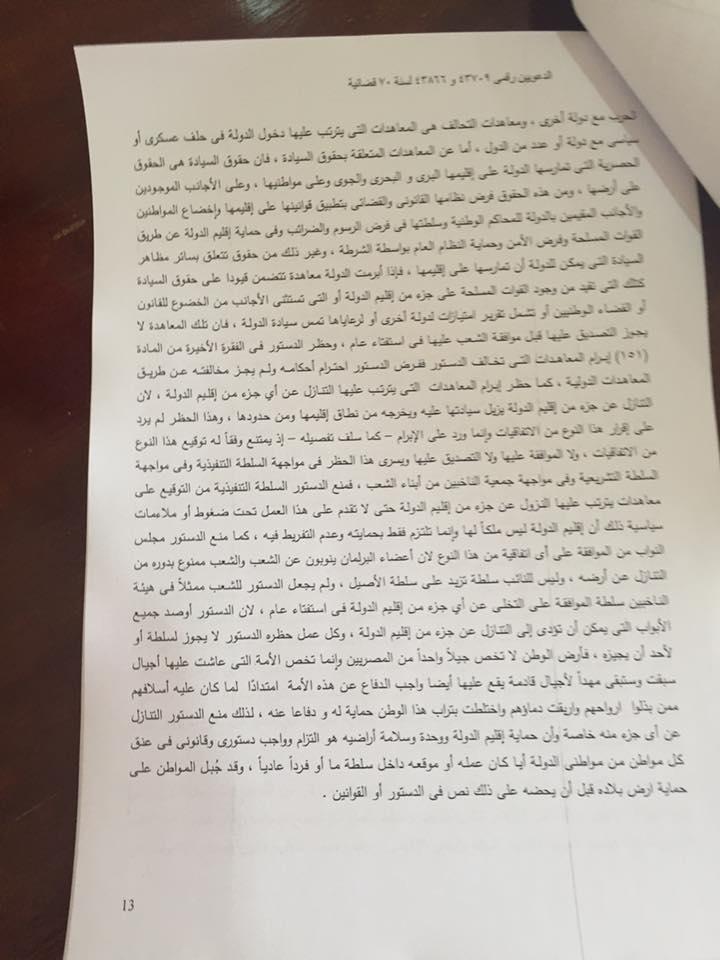 الدعويين رقمى ٤٣٧٠٩ و ٤٣٨٦٦ لسنة ٧٠ قضائية
الحرب مع دولة أخرى ، ومعاهدات التحالف هى المعاهدات التى يترتب عليها دخول الدولة فى حلف عسكرى أو
سياسى مع دولة أو عدد من الدول ، أما عن المعاهدات المتعلقة بحقوق السيادة ، فان حقوق السيادة هى الحقوق
الحصرية التى تمارسها الدولة على إقليمها البرى و البحرى والجوى وعلى مواطنيها ، وعلى الأجانب الموجودين
على أرضها ، ومن هذه الحقوق فرض نظامها القانونى والقضائى بتطبيق قوانينها على إقليمها وإخضاع المواطنين
والأجانب المقيمين بالدولة للمحاكم الوطنية وسلطتها فى فرض الرسوم والضرائب وفى حماية إقليم الدولة عن طريق
القوات المسلحة وفرض الأمن وحماية النظام العام بواسطة الشرطة ، وغير ذلك من حقوق تتعلق بسائر مظاهر
السيادة التى يمكن للدولة أن تمارسها على إقليمها ، فإذا أبرمت الدولة معاهدة تتضمن قيودا على حقوق السيادة
كتلك التى تقيد من وجود القوات المسلحة على جزء من إقليم الدولة أو التى تستثنى الأجانب من الخضوع للقانون
أو القضاء الوطنيين أو تشمل تقرير امتيازات لدولة أخرى أو لرعاياها تمس سيادة الدولة ، فان تلك المعاهدة لا
يجوز التصديق عليها قبل موافقة الشعب عليها فى استفتاء عام ، وحظر الدستور فى الفقرة الأخيرة من المادة
(١٥١) إبرام المعاهدات التى تخالف الدستور ففرض الدستور احترام أحكامه ولم يجز مخالفته عن طريق
المعاهدات الدولية ، كما حظر إبرام المعاهدات التى يترتب عليها التنازل عن أي جزء من إقليم الدولة ، لان
التنازل عن جزء من إقليم الدولة يزيل سيادتها عليه ويخرجه من نطاق إقليمها ومن حدودها ، وهذا الحظر لم يرد
على إقرار هذا النوع من الاتفاقيات وانما ورد على الإبرام – كما سلف تفصيله – إذ يمتنع وفقاً له توقيع هذا النوع
من الاتفاقيات ، ولا الموافقة عليها ولا التصديق عليها ويسرى هذا الحظر فى مواجهة السلطة التنفيذية وفى مواجهة
السلطة التشريعية وفى مواجهة جمعية الناخبين من أبناء الشعب ، فمنع الدستور السلطة التنفيذية من التوقيع على
معاهدات يترتب عليها النزول عن جزء من إقليم الدولة حتى لا تقدم على هذا العمل تحت ضغوط أو ملاءمات
سياسية ذلك أن إقليم الدولة ليس ملكاً لها وإنما تلتزم فقط بحمايته وعدم التفريط فيه ، كما منع الدستور مجلس
النواب من الموافقة على أى اتفاقية من هذا النوع لان أعضاء البرلمان ينوبون عن الشعب والشعب ممنوع بدوره من
التنازل عن أرضه ، وليس للنائب سلطة تزيد على سلطة الأصيل ، ولم يجعل الدستور للشعب ممثلاً فى هيئة
الناخبين سلطة الموافقة على التخلى عن أي جزء من إقليم الدولة فى استفتاء عام ، لان الدستور أوصد جميع
الأبواب التى يمكن أن تؤدى إلى التنازل عن جزء من إقليم الدولة ، وكل عمل حظره الدستور لا يجوز لسلطة أو
لأحد أن يجيزه ، فأرض الوطن لا تخص جيلاً واحداً من المصريين وإنما تخص الأمة التى عاشت عليها أجيال
سبقت وستبقى مهداً لأجيال قادمة يقع عليها أيضا واجب الدفاع عن هذه الأمة امتدادًا لما كان عليه أسلافهم
ممن بذلوا ارواحهم واريقت دماؤهم واختلطت بتراب هذا الوطن حماية له و دفاعا عنه ، لذلك منع الدستور التنازل
عن أى جزء منه خاصة وأن حماية إقليم الدولة ووحدة وسلامة أراضيه هو التزام وواجب دستورى وقانونى فى عنق
كل مواطن من مواطنى الدولة أيا كان عمله أو موقعه داخل سلطة ما أو فرداً عادياً ، وقد جُبل المواطن على
حماية ارض بلاده قبل أن يحضه على ذلك نص فى الدستور أو القوانين .
13